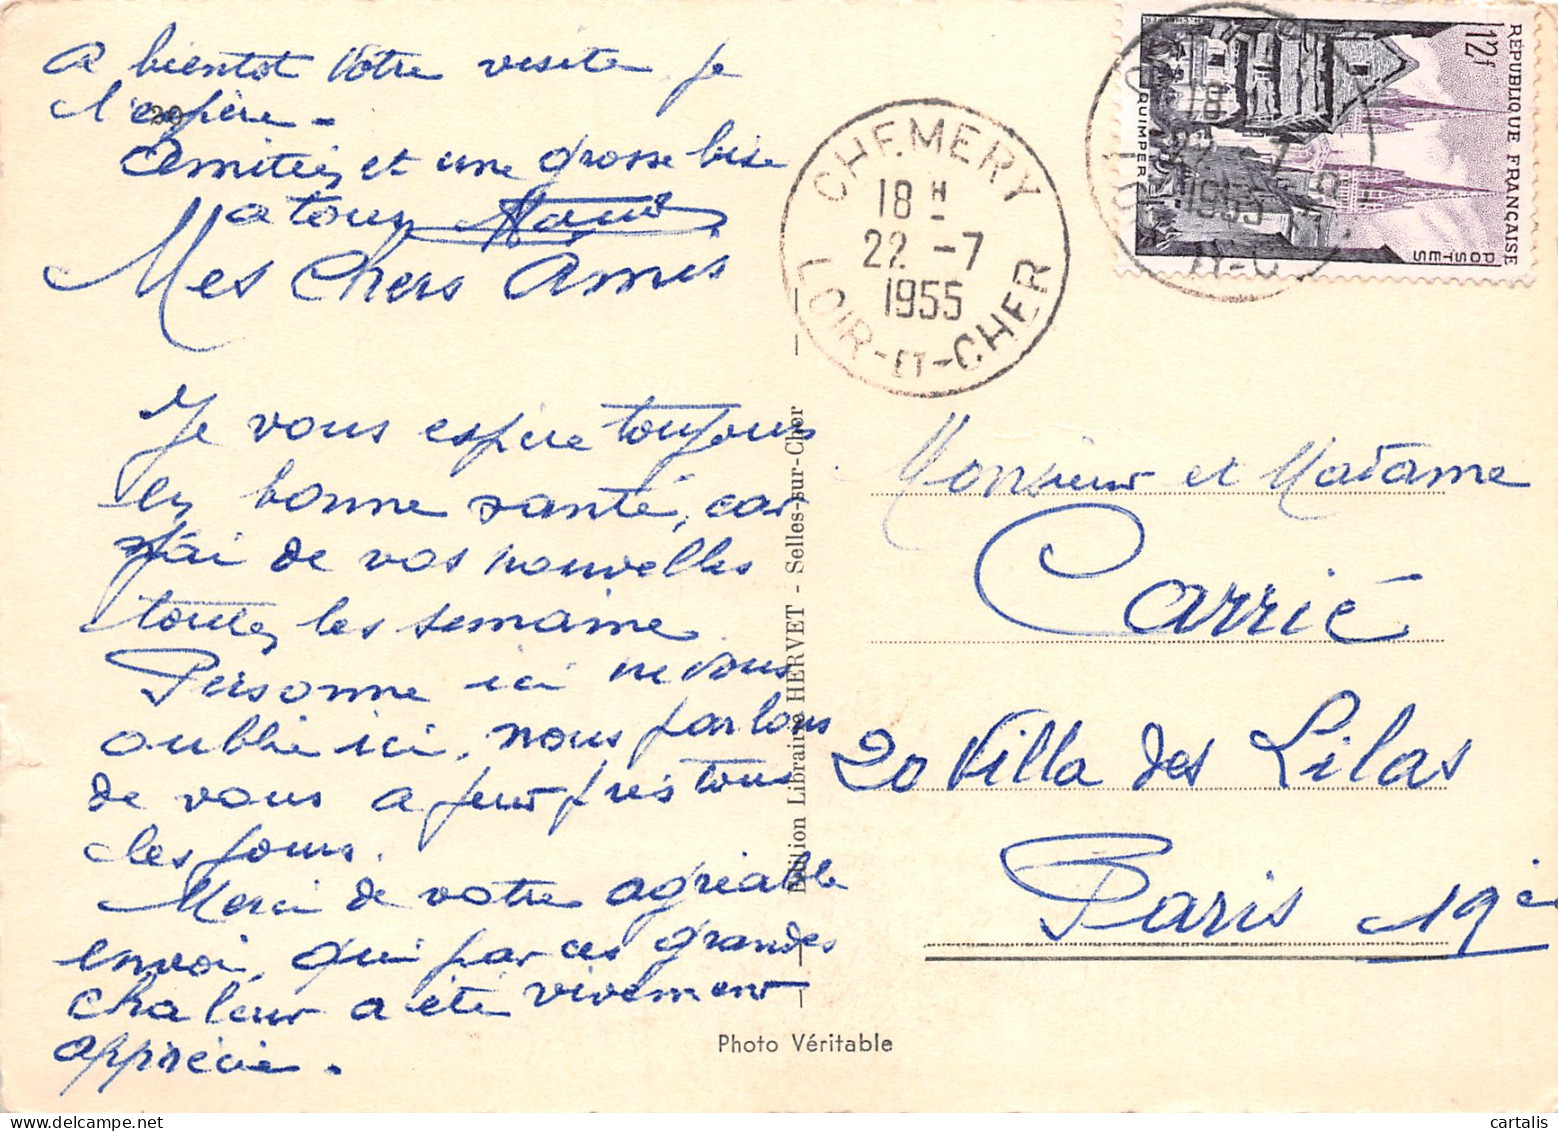 A bientot Votre visite, je
l'espère -
20
Amitiés et une grosse bise
a tous
Mes Chers Amis
Je vous espère toujours
en bonne santé, car
j'ai de vos nouvelles
toutes les semaine
Personne ici ne vous
oublie ici, nous parlons
de vous a peur près tous
les jours.
Merci de votre agréable
envoi, qui par ces grandes
chaleur a été vivement
appréciée.
Edition Librairie HERVET - Selles-sur-Cher
Photo Véritable
CHEMERY
18 H
22 -7
1955
LOIR-ET-CHER
RÉPUBLIQUE FRANÇAISE
12f
POSTES
QUIMPER
18
22 -7
1955
Monsieur et Madame
Carrié
20 Villa des Lilas
Paris 19è
cartalis